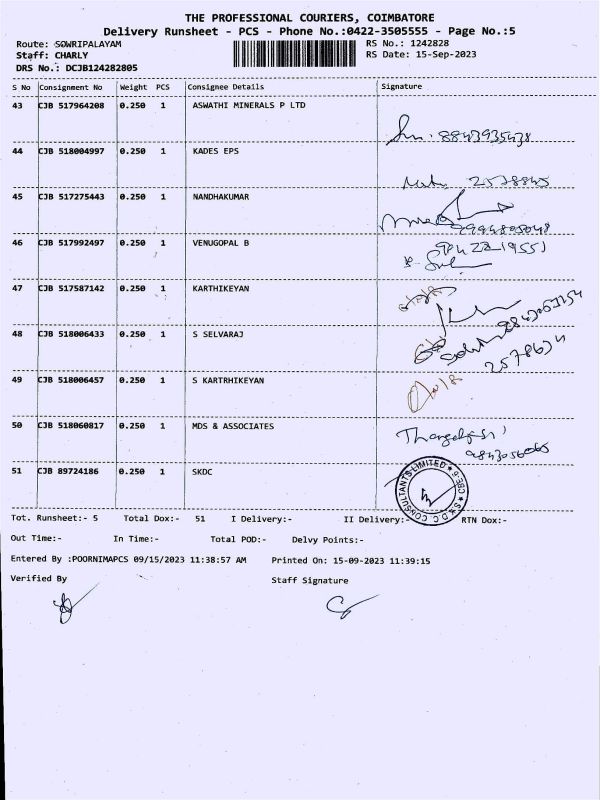 THE PROFESSIONAL COURIERS, COIMBATORE
Delivery Runsheet - PCS - Phone No.:0422-3505555 - Page No.:5
Route: SOWRIPALAYAM RS No.: 1242828
Staff: CHARLY RS Date: 15-Sep-2023
DRS No.: DCJB124282805
S No Consignment No Weight PCS Consignee Details Signature
43 CJB 517964208 0.250 1 ASWATHI MINERALS P LTD
8843935438
44 CJB 518004997 0.250 1 KADES EPS
2578845
45 CJB 517275443 0.250 1 NANDHAKUMAR
46 CJB 517992497 0.250 1 VENUGOPAL B
47 CJB 517587142 0.250 1 KARTHIKEYAN
48 CJB 518006433 0.250 1 S SELVARAJ
2578634
49 CJB 518006457 0.250 1 S KARTRHIKEYAN
50 CJB 518060817 0.250 1 MDS & ASSOCIATES
51 CJB 89724186 0.250 1 SKDC
CONSULTANTS LIMITED
Tot. Runsheet:- 5 Total Dox:- 51 I Delivery:- II Delivery:- RTN Dox:-
Out Time:- In Time:- Total POD:- Delvy Points:-
Entered By :POORNIMAPCS 09/15/2023 11:38:57 AM Printed On: 15-09-2023 11:39:15
Verified By Staff Signature